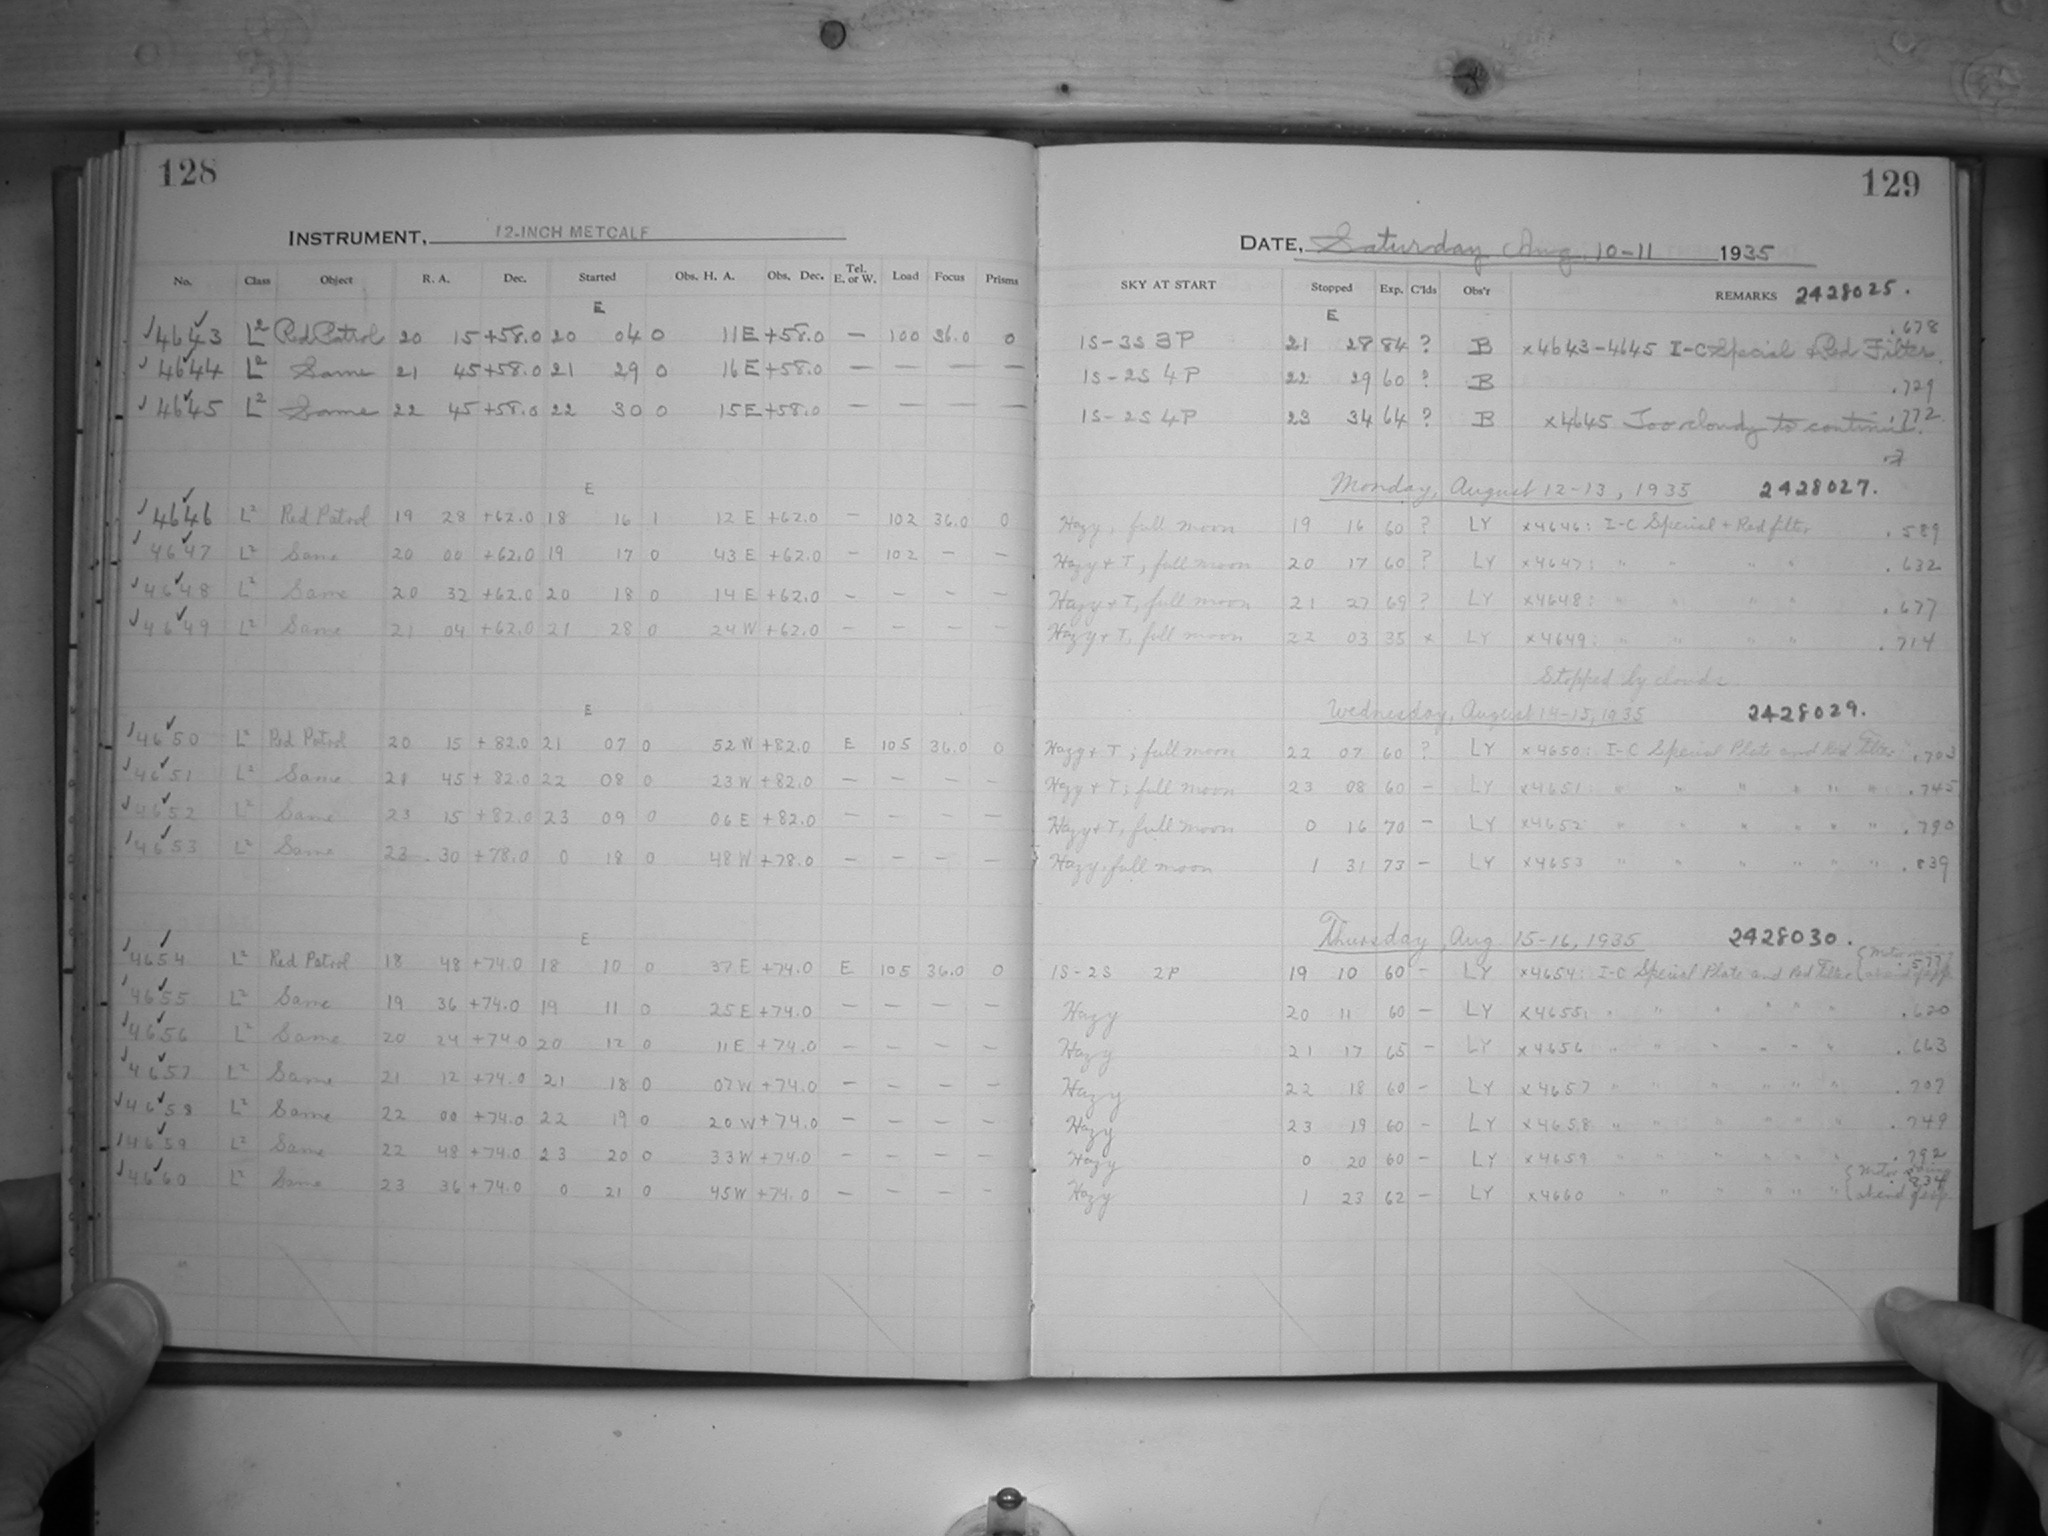 128
INSTRUMENT, 12-INCH METCALF
No. Class Object R. A. Dec. Started Obs. H. A. Obs. Dec. Tel. E. or W. Load Focus Prisms
E
4643 L² Red Patrol 20 15 +58.0 20 04 0 11 E +58.0 — 100 36.0 0
4644 L² Same 21 45 +58.0 21 29 0 16 E +58.0 — — — —
4645 L² Same 22 45 +58.0 22 30 0 15 E +58.0 — — — —
E
4646 L² Red Patrol 19 28 +62.0 18 16 1 12 E +62.0 — 102 36.0 0
4647 L² Same 20 00 +62.0 19 17 0 43 E +62.0 — 102 — —
4648 L² Same 20 32 +62.0 20 18 0 14 E +62.0 — — — —
4649 L² Same 21 04 +62.0 21 28 0 24 W +62.0 — — — —
E
4650 L² Red Patrol 20 15 +82.0 21 07 0 52 W +82.0 E 105 36.0 0
4651 L² Same 21 45 +82.0 22 08 0 23 W +82.0 — — — —
4652 L² Same 23 15 +82.0 23 09 0 06 E +82.0 — — — —
4653 L² Same 23 30 +78.0 0 18 0 48 W +78.0 — — — —
E
4654 L² Red Patrol 18 48 +74.0 18 10 0 37 E +74.0 E 105 36.0 0
4655 L² Same 19 36 +74.0 19 11 0 25 E +74.0 — — — —
4656 L² Same 20 24 +74.0 20 12 0 11 E +74.0 — — — —
4657 L² Same 21 12 +74.0 21 18 0 07 W +74.0 — — — —
4658 L² Same 22 00 +74.0 22 19 0 20 W +74.0 — — — —
4659 L² Same 22 48 +74.0 23 20 0 33 W +74.0 — — — —
4660 L² Same 23 36 +74.0 0 21 0 45 W +74.0 — — — —
129
DATE, Saturday Aug 10-11 1935
SKY AT START Stopped Exp. C'lds Obs'r REMARKS 2428025.
E
1S-3S 3P 21 28 84 ? B x4643-4645 I-C Special + Red Filter .678
1S-2S 4P 22 29 60 ? B .729
1S-2S 4P 23 34 64 ? B x4645 Too cloudy to continue. .772
Monday, August 12-13, 1935 2428027.
Hazy, full moon 19 16 60 ? LY x4646: I-C Special + Red filter .589
Hazy + T, full moon 20 17 60 ? LY x4647: " " " " .632
Hazy + T, full moon 21 27 69 ? LY x4648: " " " " .677
Hazy + T, full moon 22 03 35 x LY x4649: " " " " .714
Stopped by clouds
Wednesday, August 14-15, 1935 2428029.
Hazy + T; full moon 22 07 60 ? LY x4650: I-C Special Plate and Red Filter .703
Hazy + T; full moon 23 08 60 — LY x4651: " " " " " " .745
Hazy + T, full moon 0 16 70 — LY x4652 " " " " " " .790
Hazy, full moon 1 31 73 — LY x4653 " " " " " " .839
Thursday, Aug 15-16, 1935 2428030.
1S-2S 2P 19 10 60 — LY x4654: I-C Special Plate and Red Filter .577
Hazy 20 11 60 — LY x4655: " " " " " " .620
Hazy 21 17 65 — LY x4656 " " " " " " .663
Hazy 22 18 60 — LY x4657 " " " " " " .707
Hazy 23 19 60 — LY x4658 " " " " " " .749
Hazy 0 20 60 — LY x4659 " " " " " " .792
Hazy 1 23 62 — LY x4660 " " " " " " .834